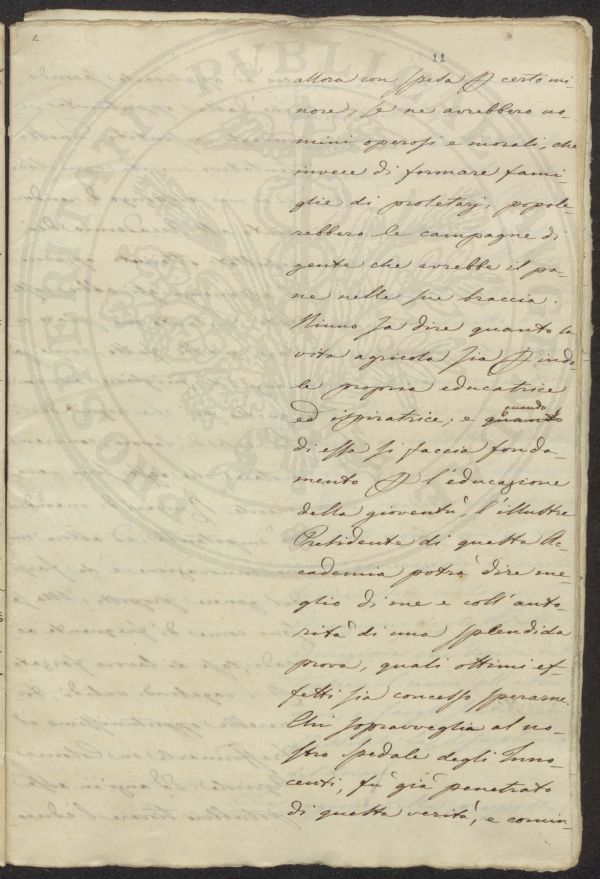 2
11
allora con spesa p certo mi-
nore, se ne avrebbero uo-
mini operosi e morali, che
invece di formare fami-
glie di proletarj, popole-
rebbero le campagne di
gente che avrebbe il pa-
ne nelle sue braccia.
Niuno sa dire quanto la
vita agricola sia p indo-
le propria educatrice
ed ispiratrice; e quando
di essa si faccia fonda-
mento p l'educazione
della gioventù, l'illustre
Presidente di questa Ac-
cademia potrà dire me-
glio di me e coll'auto-
rità di una splendida
prova, quali ottimi ef-
fetti sia concesso sperarne.
Chi sopravveglia al no-
stro spedale degli Inno-
centi, fu già penetrato
di questa verità, e comin-